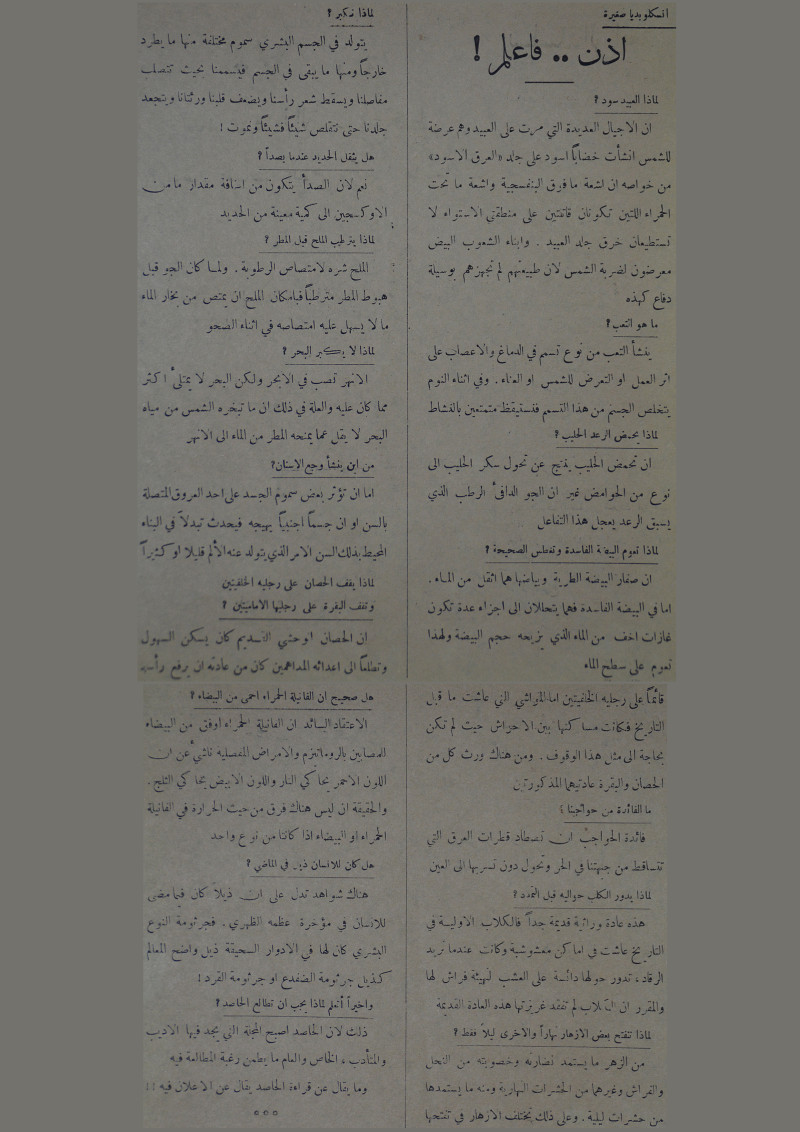 انسكلوبديا صغيرة
اذن .. فاعلم !
لماذا العبيد سود ؟
ان الاجيال العديدة التي مرت على العبيد وهم عرضة
للشمس انشأت خضاباً اسود على جلد «العرق الاسود»
من خواصه ان اشعة ما فوق البنفسجية واشعة ما تحت
الحمراء اللتين تكونان قاتلتين على منطقتي الاستواء لا
تستطيعان خرق جلد العبيد . وابناء الشعوب البيض
معرضون لضربة الشمس لان طبيعتهم لم تجهزهم بوسيلة
دفاع كهذه
ما هو التعب ؟
ينشأ التعب من نوع تسمم في الدماغ والاعصاب على
اثر العمل او التعرض للشمس او العناء . وفي اثناء النوم
يتخلص الجسم من هذا التسمم فنستيقظ متمتعين بالنشاط
لماذا يحمض الرعد الحليب ؟
ان تحمض الحليب ينتج عن تحول سكر الحليب الى
نوع من الحوامض غير ان الجو الدافئ الرطب الذي
يسبق الرعد يعجل هذا التفاعل
لماذا تعوم البيضة الفاسدة وتغطس الصحيحة ؟
ان صفار البيضة الطرية وبياضها هما اثقل من الماء .
اما في البيضة الفاسدة فهما يتحللان الى اجزاء عدة تكون
غازات اخف من الماء الذي يزيحه حجم البيضة ولهذا
تعوم على سطح الماء
لماذا نكبر ؟
يتولد في الجسم البشري سموم مختلفة منها ما يطرد
خارجاً ومنها ما يبقى في الجسم فيسممنا بحيث تتصلب
مفاصلنا ويسقط شعر رأسنا ويضعف قلبنا ورئتانا ويتجعد
جلدنا حتى نتقلص شيئاً فشيئاً ونموت !
هل يثقل الحديد عندما يصدأ ؟
نعم لان الصدأ يتكون من اضافة مقدار ما من
الاوكسجين الى كمية معينة من الحديد
لماذا يترطب الملح قبل المطر ؟
الملح شره لامتصاص الرطوبة . ولما كان الجو قبل
هبوط المطر مترطباً فبامكان الملح ان يمتص من بخار الماء
ما لا يسهل عليه امتصاصه في اثناء الصحو
لماذا لا يكبر البحر ؟
الانهر تصب في الابحر ولكن البحر لا يمتلئ اكثر
مما كان عليه والعلة في ذلك ان ما تبخره الشمس من مياه
البحر لا يقل عما يمنحه المطر من الماء الى الانهر
من اين ينشأ وجع الاسنان ؟
اما ان تؤثر بعض سموم الجسد على احد العروق المتصلة
بالسن او ان جسماً اجنبياً يهيجه فيحدث تبدلاً في البناء
المحيط بذلك السن الامر الذي يتولد عنه الألم قليلا او كثيراً
لماذا يقف الحصان على رجليه الخلفيتين
وتقف البقرة على رجليها الاماميتين ؟
ان الحصان الوحشي القديم كان يسكن السهول
وتطلعاً الى اعدائه المداهمين كان من عادته ان يرفع رأسه
قائماً على رجليه الخلفيتين اما المواشي التي عاشت ما قبل
التاريخ فكانت مساكنها بين الاحراش حيث لم تكن
بحاجة الى مثل هذا الوقوف . ومن هناك ورث كل من
الحصان والبقرة عادتيهما المذكورتين
ما الفائدة من حواجبنا ؟
فائدة الحواجب ان تصطاد قطرات العرق التي
تتساقط من جبهتنا في الحر وتحول دون تسربها الى العين
لماذا يدور الكلب حواليه قبل التمدد ؟
هذه عادة وراثية قديمة جداً فالكلاب الاولية في
التاريخ عاشت في اماكن معشوشبة وكانت عندما تريد
الرقاد ، تدور حولها دائسة على العشب لتهيئة فراش لها
والمقرر ان الكلاب لم تفقد غريزتها هذه العادة القديمة
لماذا تتفتح بعض الازهار نهاراً والاخرى ليلاً فقط ؟
من الزهر ما يستمد نضارته وخصوبته من النحل
والفراش وغيرهما من الحشرات النهارية ومنه ما يستمدها
من حشرات ليلية . وعلى ذلك تختلف الازهار في تفتحها
هل صحيح ان الفانيلة الحمراء احمى من البيضاء ؟
الاعتقاد السائد ان الفانيلة الحمراء اوفق من البيضاء
للمصابين بالروماتيزم والامراض المفصليه ناشئ عن ان
اللون الاحمر يحاكي النار واللون الابيض يحاكي الثلج .
والحقيقة ان ليس هناك فرق من حيث الحرارة في الفانيلة
الحمراء او البيضاء اذا كانتا من نوع واحد
هل كان للانسان ذيل في الماضي ؟
هناك شواهد تدل على ان ذيلاً كان فيما مضى
للانسان في مؤخرة عظمه الظهري . فجرثومة النوع
البشري كان لها في الادوار السحيقة ذيل واضح المعالم
كذيل جرثومة الضفدع او جرثومة القرد !
واخيراً أتعلم لماذا يجب ان تطالع الحاصد ؟
ذلك لان الحاصد اصبح المجلة التي يجد فيها الاديب
والمتأدب ، الخاص والعام ما يطمن رغبة المطالعة فيه
وما يقال عن قراءة الحاصد يقال عن الاعلان فيه !!
° ° °